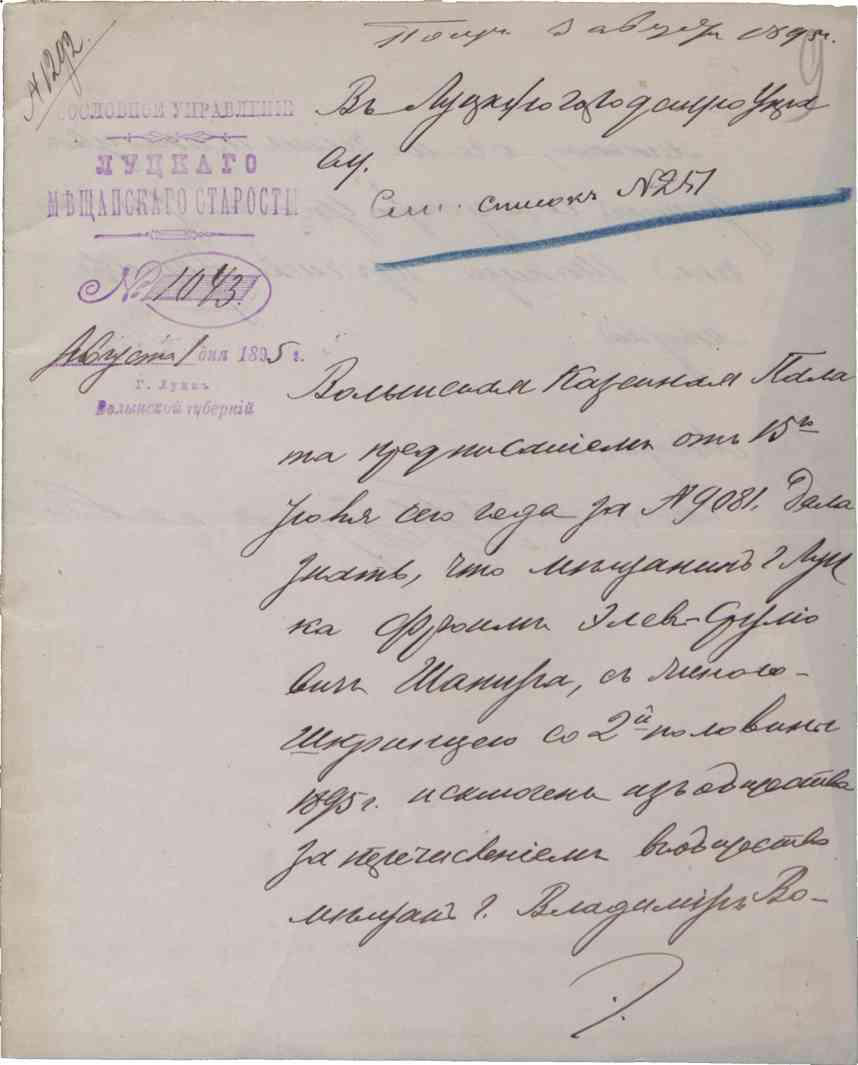 Получ. 3 августа 1895 г.
№ 1292.
9
СОСЛОВНОЕ УПРАВЛЕНІЕ
ЛУЦКАГО
МѢЩАНСКАГО СТАРОСТЫ
№ 1043.
Августа 1 дня 1895 г.
Г. Луцкъ
Волынской губерніи
Въ Луцкую городскую Упра
ву.
Сем. списокъ № 251
Волынская Казенная Пала
та предписаніемъ отъ 15го
Іюня сего года за № 9081. дала
знать, что мѣщанинъ г. Луц
ка Фроимъ Элев-Сруліо
вичъ Шапира, съ женою
со 2й половины
1895 г. исключенъ изъ общества
за перечисленіемъ въ общество
мѣщанъ г. Владиміръ Во-